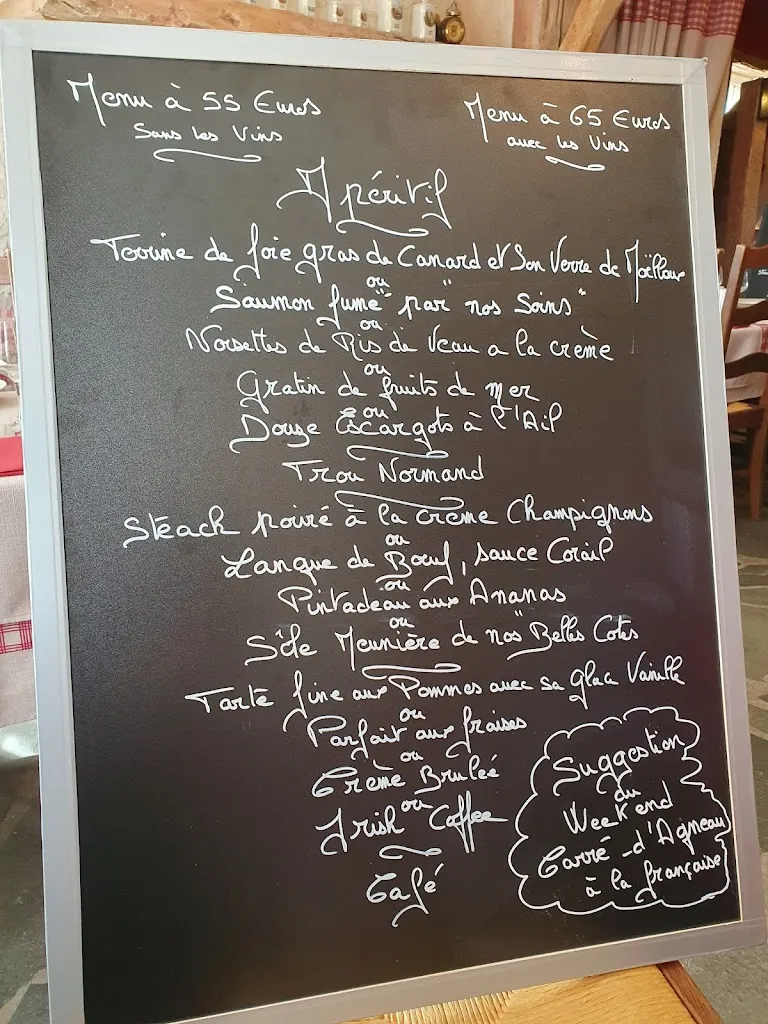 Menu à 55 Euros
Sans les Vins
Menu à 65 Euros
avec les Vins
Apéritif
Terrine de foie gras de Canard et Son Verre de Moëlleux
ou
Saumon fumé "par nos Soins"
ou
Noisettes de Ris de Veau a la crème
ou
Gratin de fruits de mer
ou
Douze Escargots à l'Ail
Trou Normand
Steack poivré à la crème Champignons
ou
Langue de Bœuf, sauce Corail
ou
Pintadeau aux Ananas
ou
Sole Meunière de nos "Belles Cotes
Tarte fine aux Pommes avec sa glace Vanille
ou
Parfait aux fraises
ou
Crème Brulée
ou
Irish Coffee
Café
Suggestion
du
Weekend
Carré d'Agneau
à la française